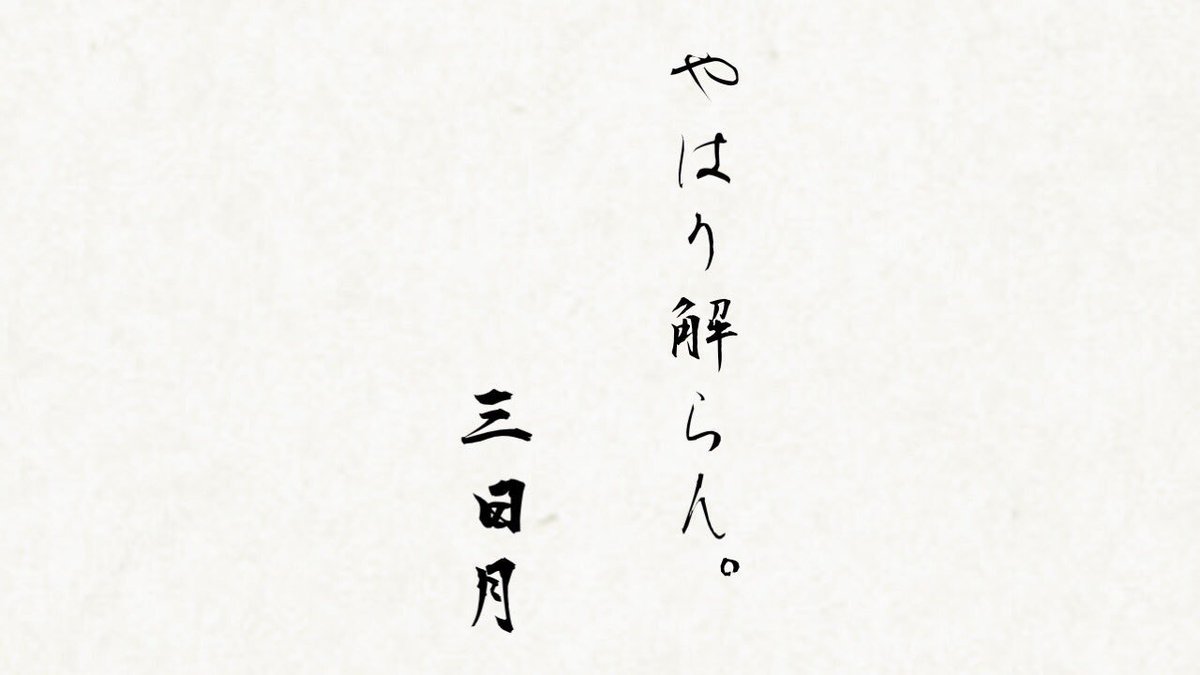 やはり解らん。
三日月